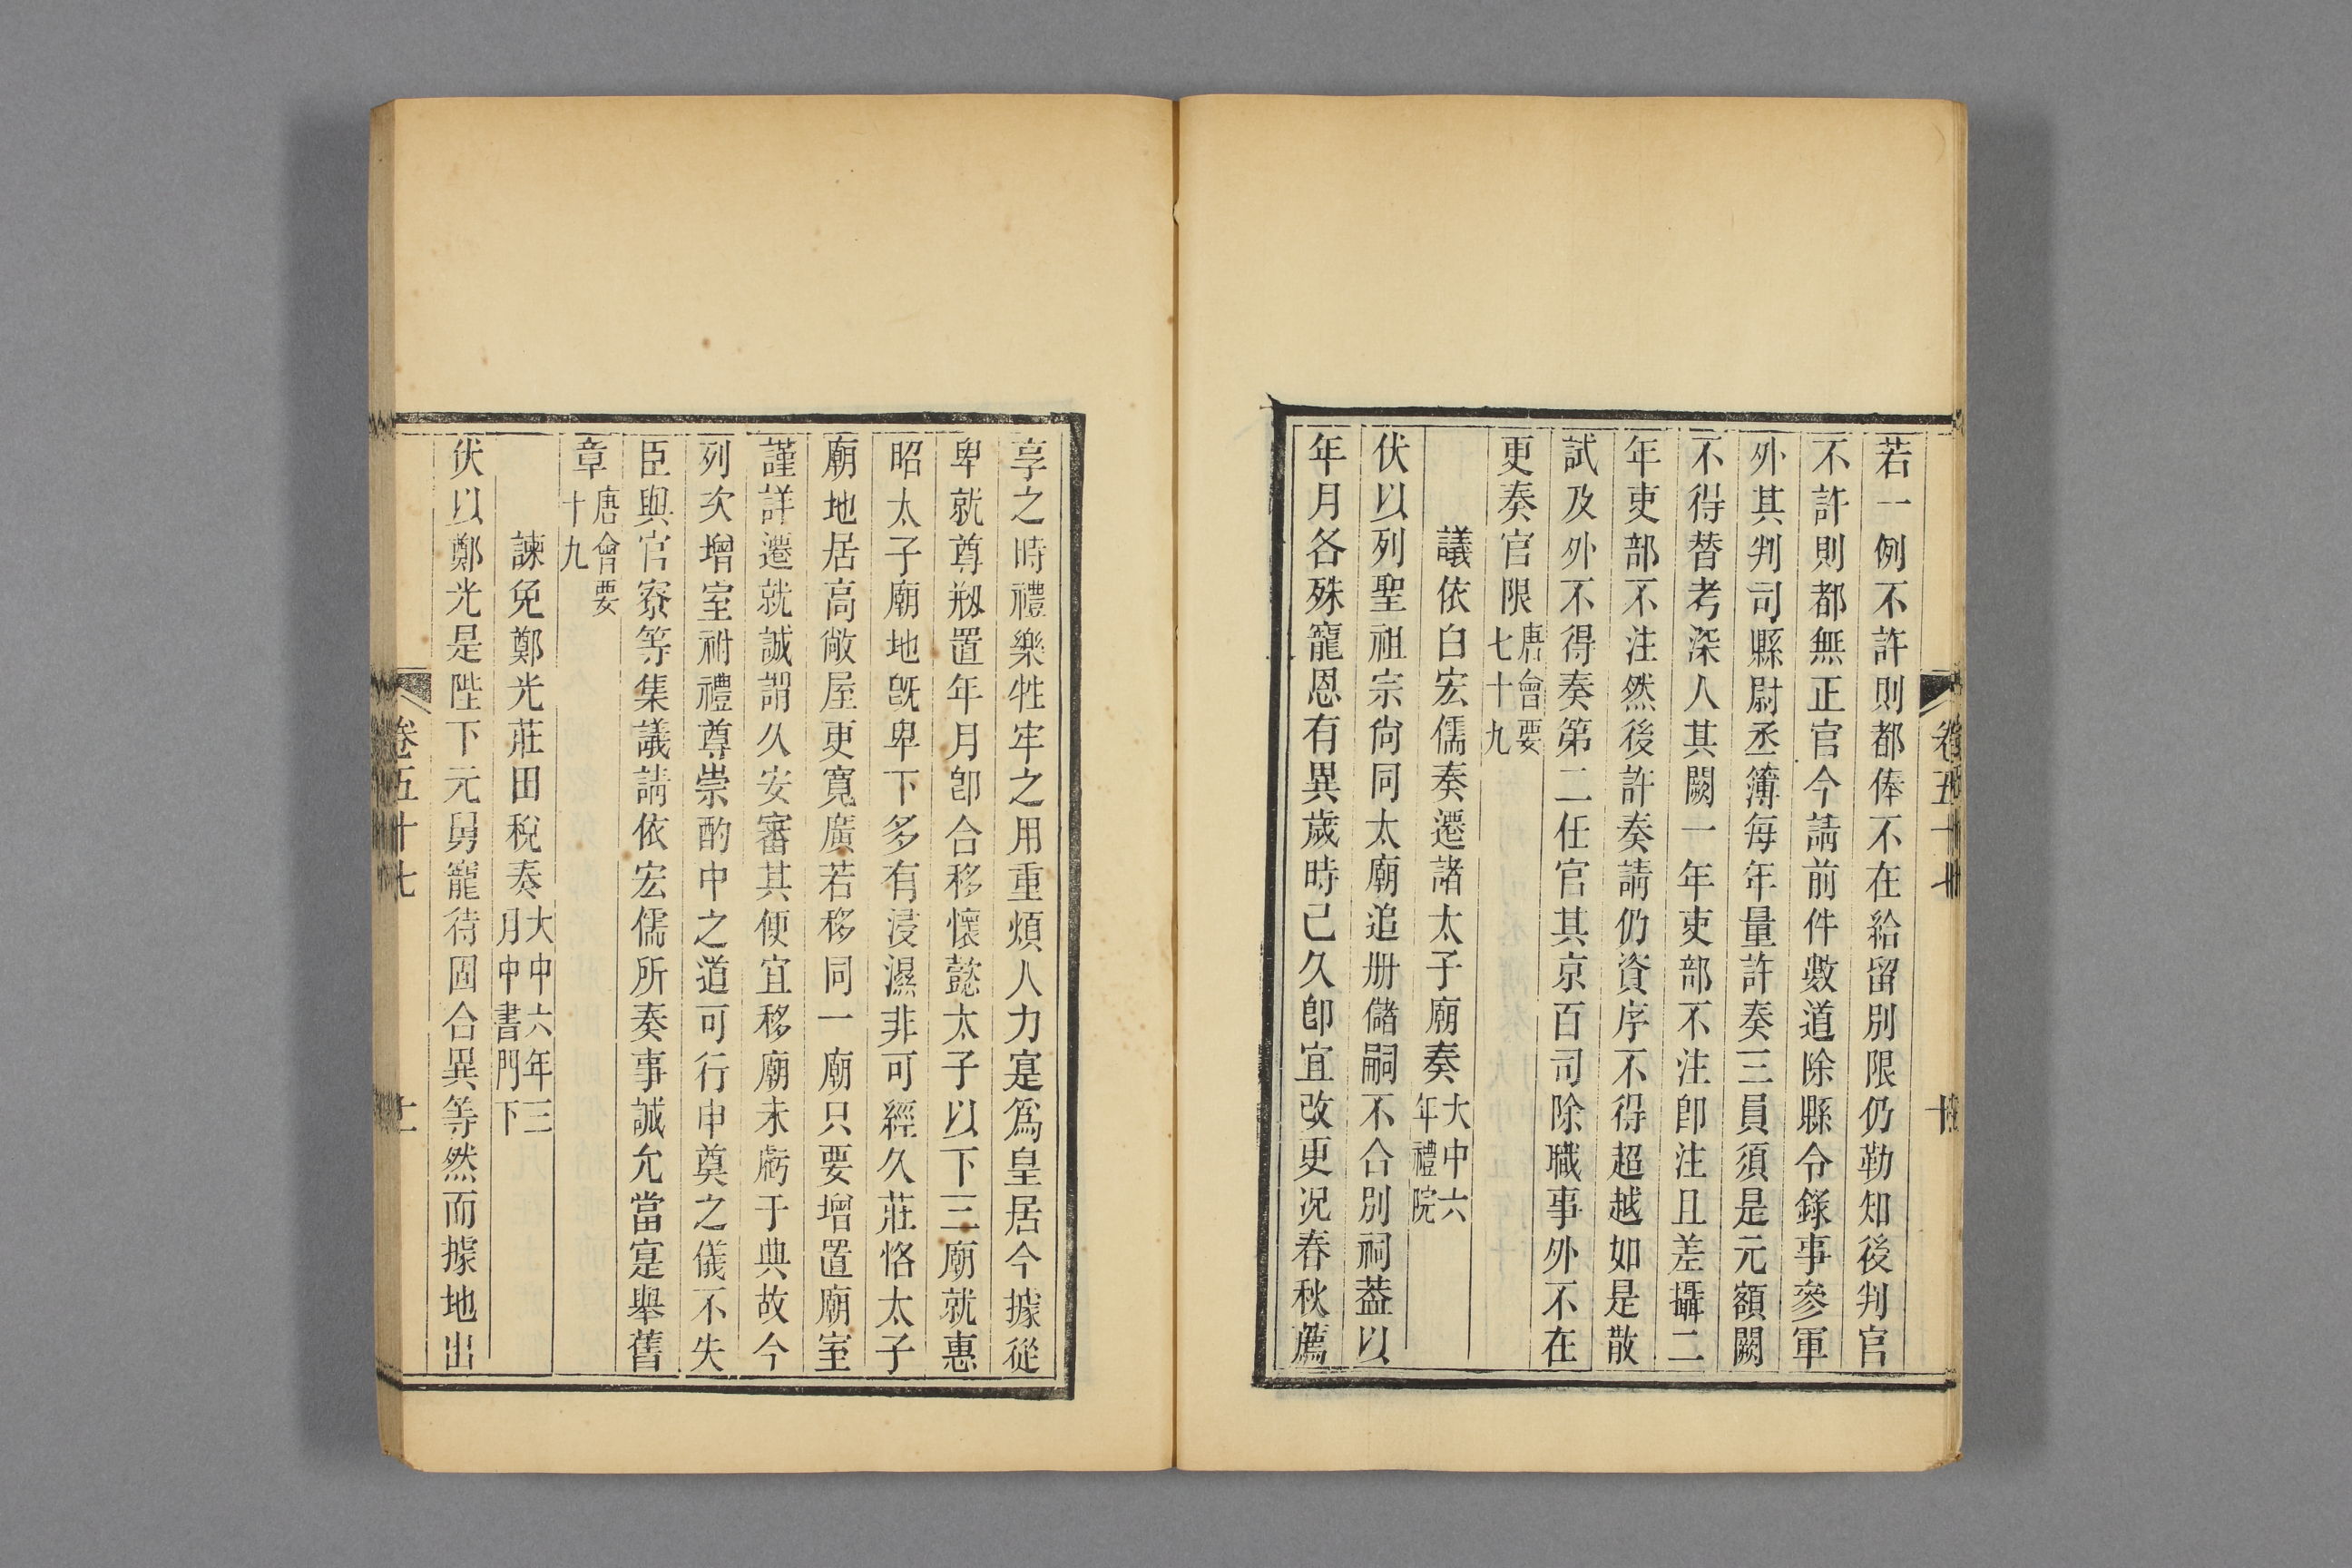 若一例不許則都俸不在給留別限仍勒知後判官
不許則都無正官今請前件數道除縣令錄事參軍
外其判司縣尉丞簿每年量許奏三員須是元額闕
不得替考深人其闕一年吏部不注卽注且差攝二
年吏部不注然後許奏請仍資序不得超越如是散
試及外不得奏第二任官其京百司除職事外不在
更奏官限唐會要七十九
議依白宏儒奏遷諸太子廟奏大中六年禮院
伏以列聖祖宗尙同太廟追册儲嗣不合別祠葢以
年月各殊寵恩有異歲時己久卽宜改更况春秋薦
享之時禮樂牲牢之用重煩人力寔爲皇居今據從
卑就尊剏置年月卽合移懷懿太子以下三廟就惠
昭太子廟地旣卑下多有浸濕非可經久莊恪太子
廟地居高敞屋更寬廣若移同一廟只要增置廟室
謹詳遷就誠謂久安審其便宜移廟未虧于典故今
列次增室祔禮尊崇酌中之道可行申奠之儀不失
臣與官寮等集議請依宏儒所奏事誠允當寔舉舊
章唐會要十九
諫免鄭光莊田稅奏大中六年三月中書門下
伏以鄭光是陛下元舅寵待固合異等然而據地出
卷五十七